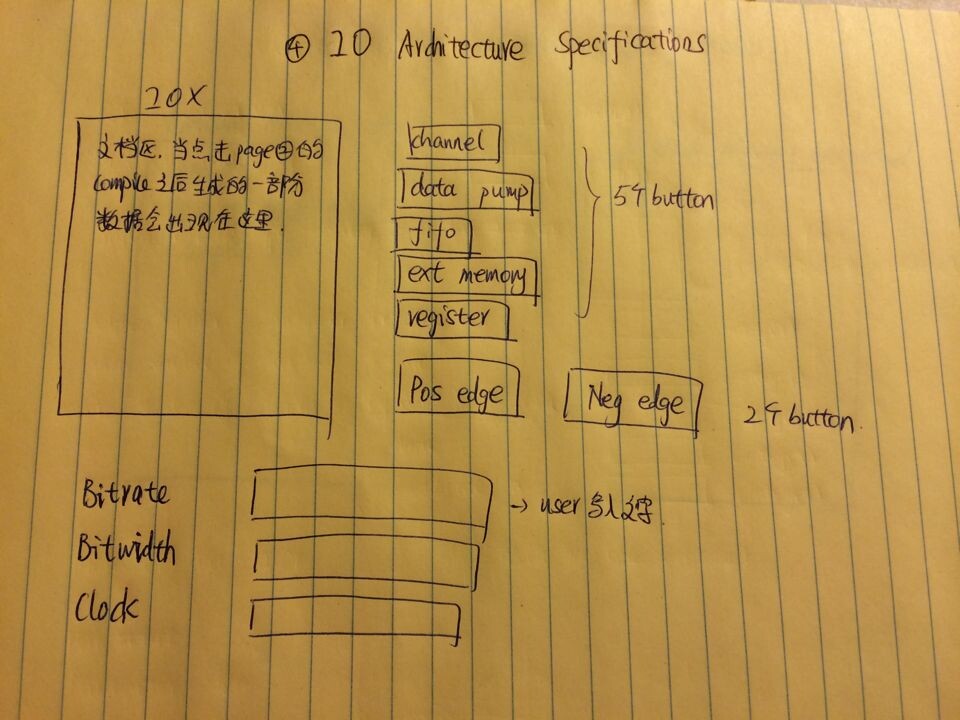 ④ IO Architecture Specifications
IOX
文档区, 当点击page②的
compile之后生成的一部分
数据会出现在这里.
channel
data pump
fifo
ext memory
register
5个button
Pos edge
Neg edge
2个button.
Bitrate
→ user 写入文字.
Bitwidth
Clock